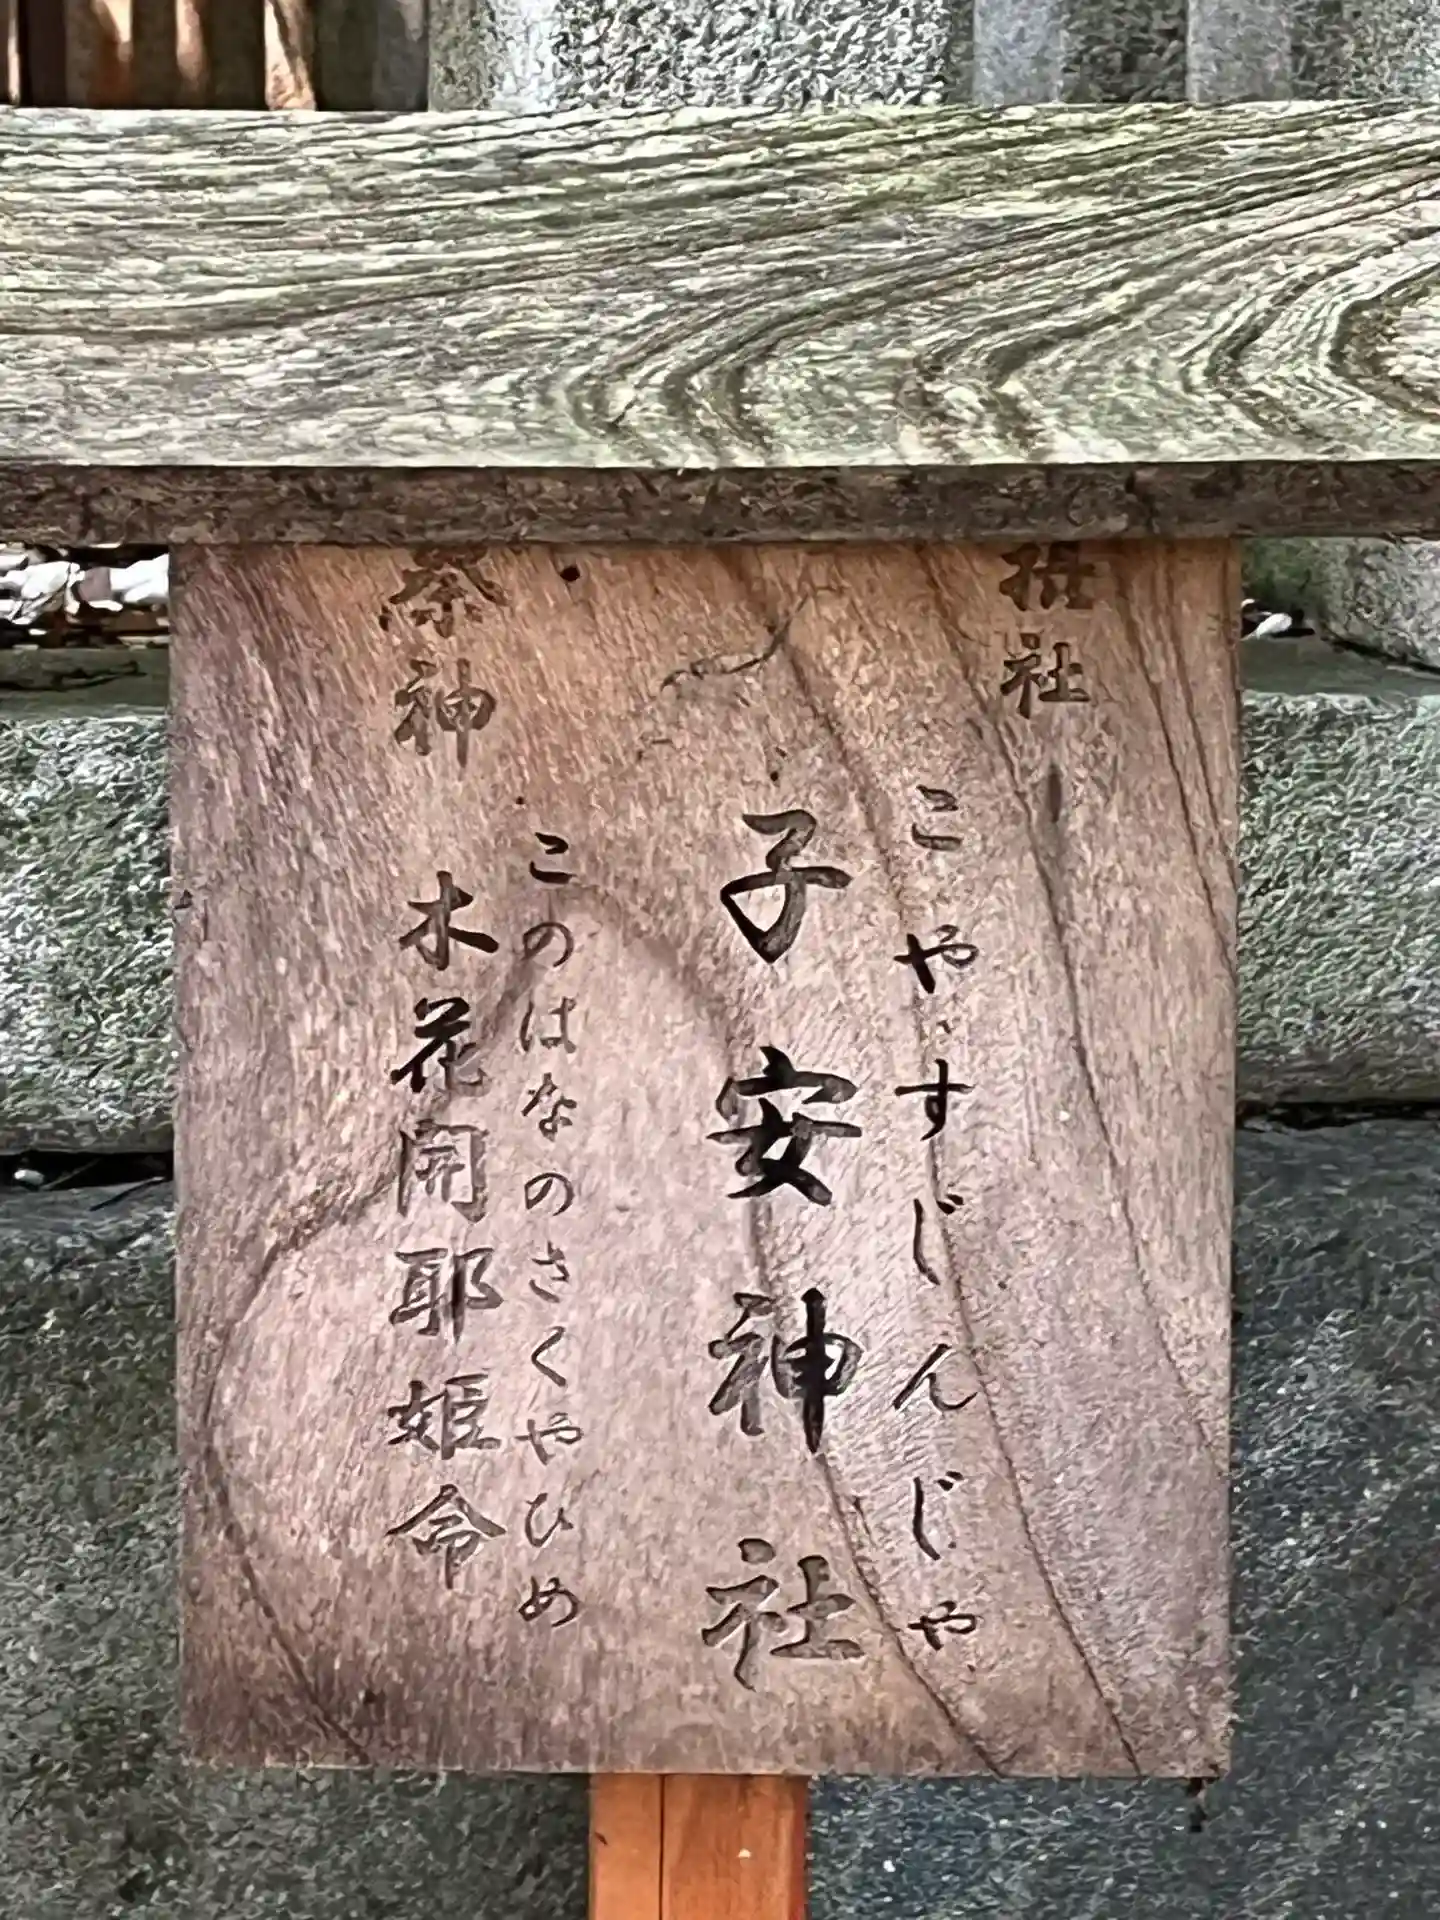 摂社
こやすじんじゃ
子安神社
このはなのさくやひめ
祭神 木花開耶姫命